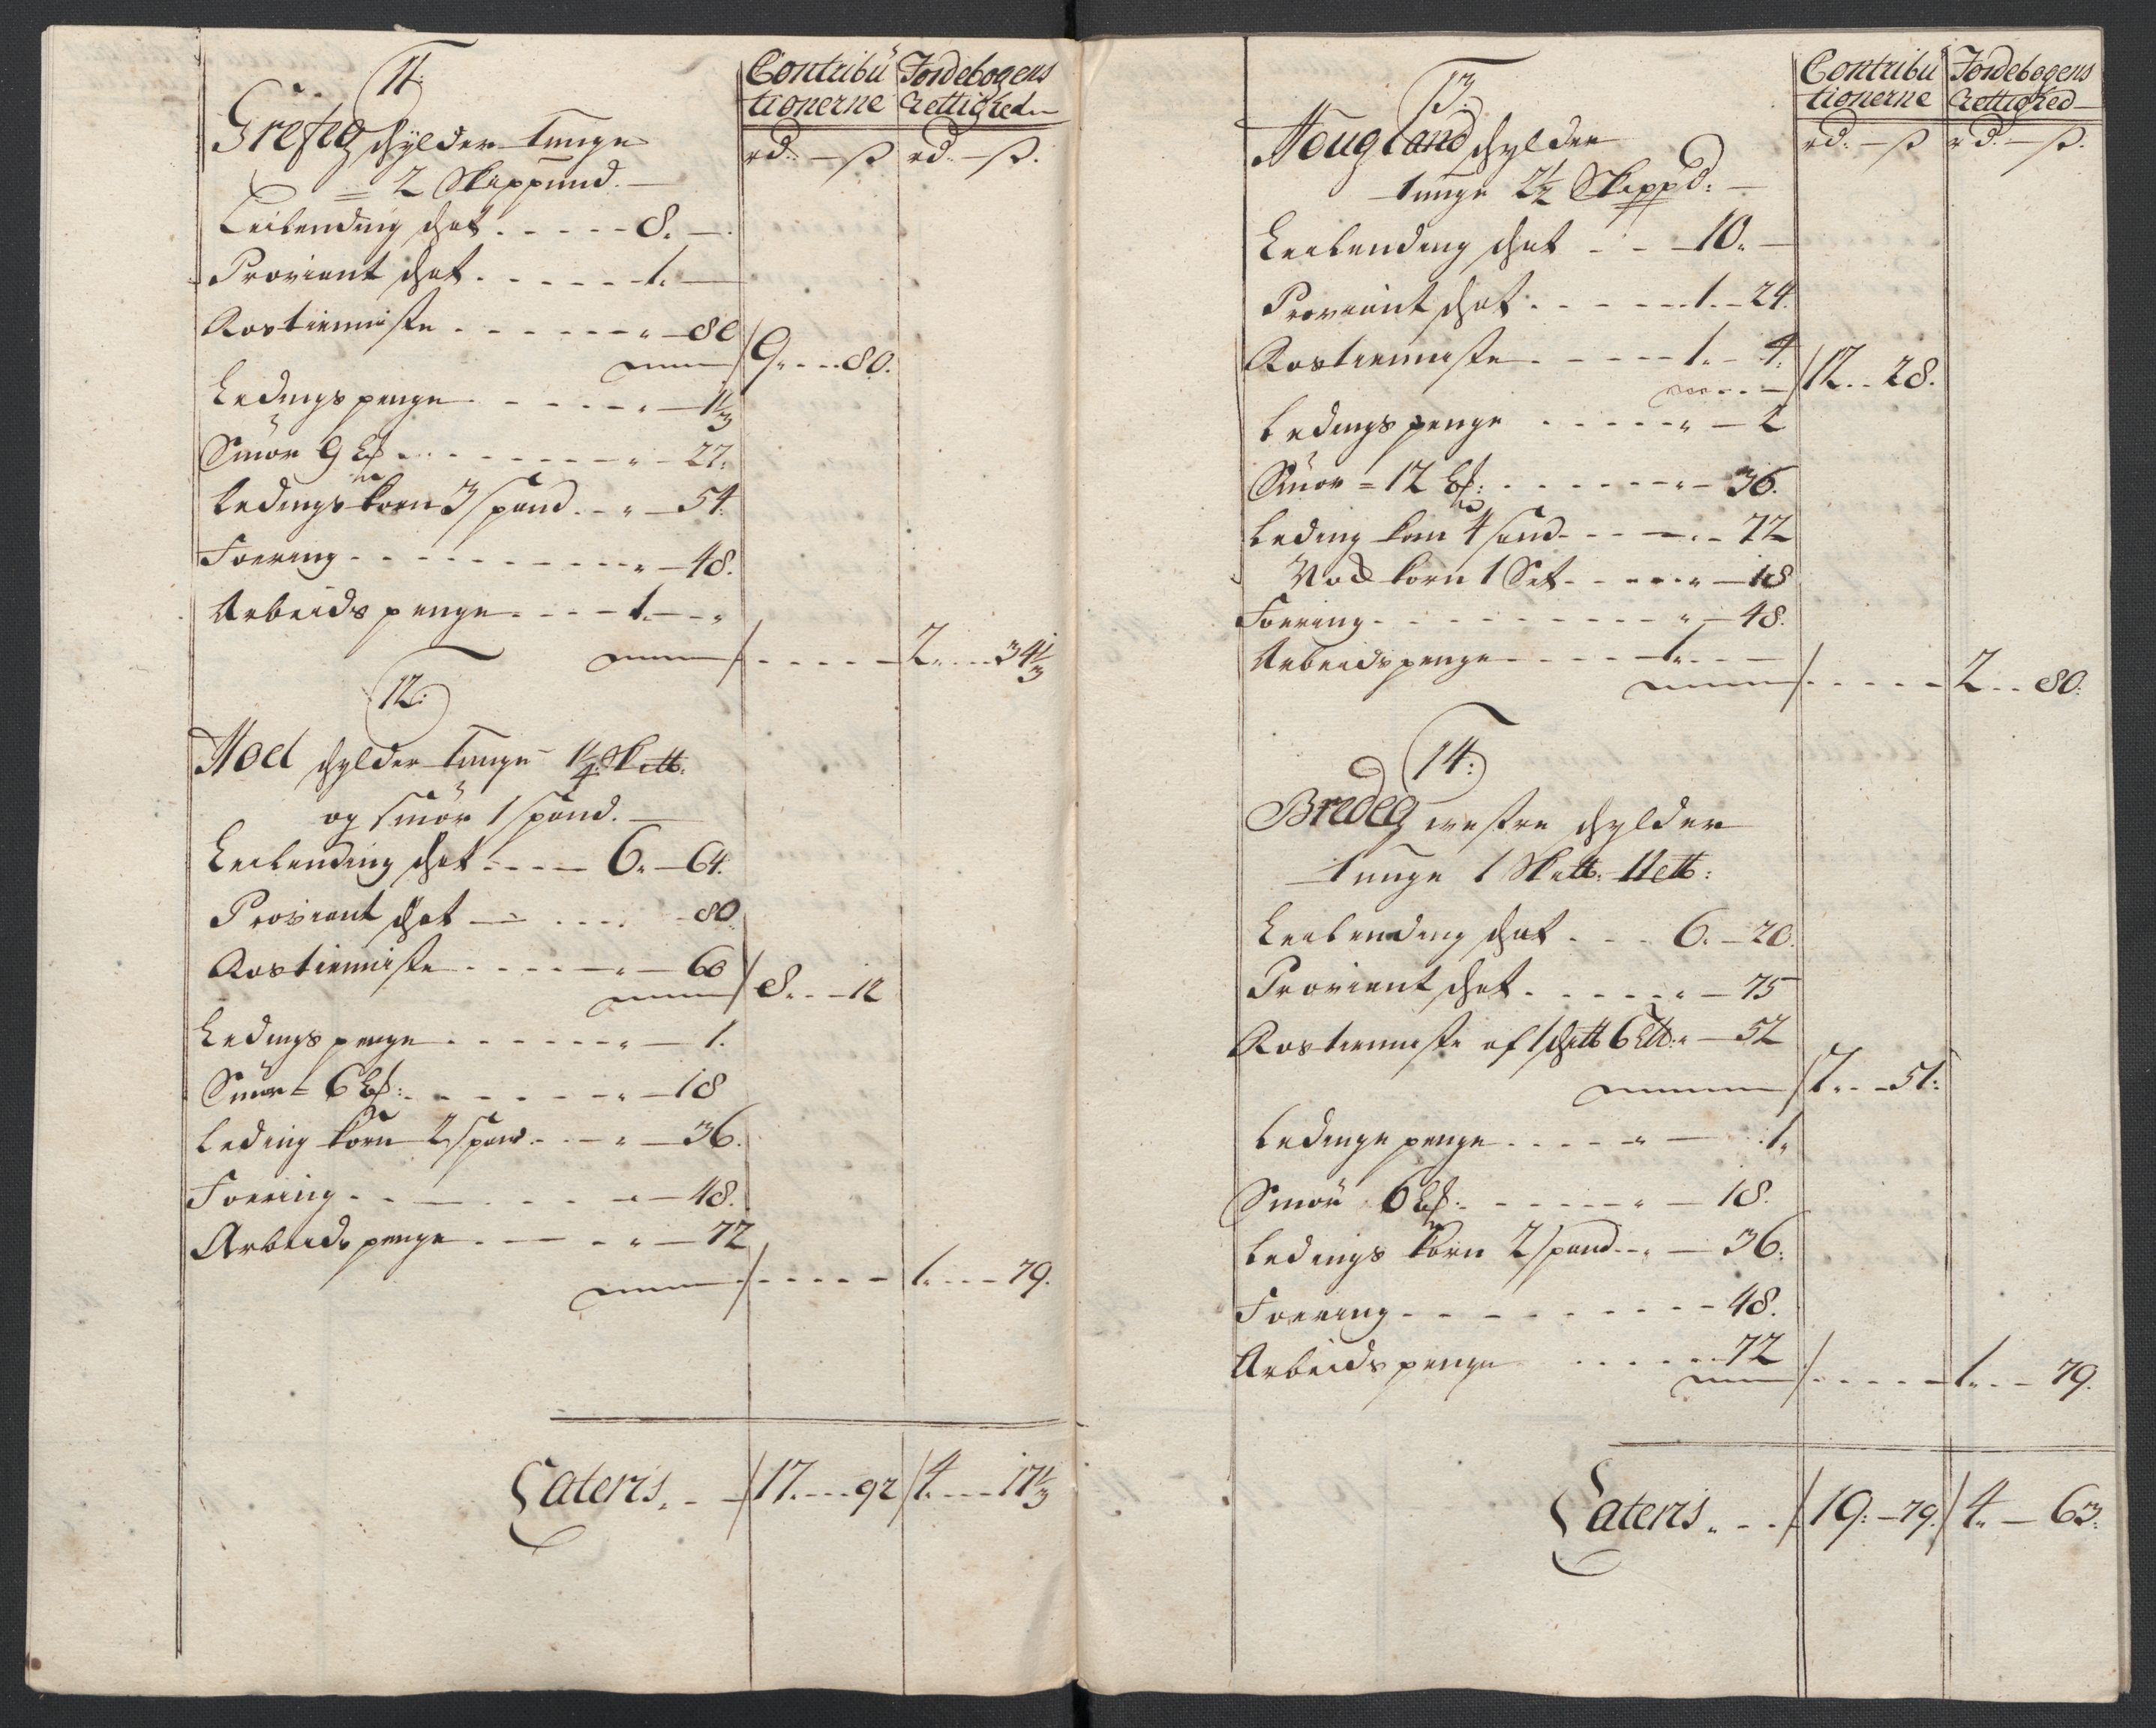 Contribu Jordebogens
tionerne Rettighed
rd. – ß rd. – ß.
11:
Grefeg skylder tunge
2 Skippund.
Leilending skat . . . . . 8. –
Proviant skat . . . . . 1. –
Rostienniste . . . . . . „ – 80
9. . . . 80.
Ledings penge . . . . . „ – 1 1/3
Smør 9 . . . . . „ – 27.
Ledings korn 3 spand . . „ – 54.
Foering . . . . . . „ – 48.
Arbeids penge . . . . 1. – „
2. . . . 34 1/3
12:
Hoel skylder tunge 1 1/4 Skett.
og smør 1 spand.
Leilending skat . . . . 6. – 64.
Proviant skat . . . . 80.
Rostienniste . . . . . „ – 60
8. . . – 12
Ledings penge . . . . . . „ – 1.
Smør – 6 . . . . . „ – 18
Leding korn 2 span . . . „ – 36.
Foering . . . . . – 48.
Arbeids penge . . . . „ – 72
1. . . . 79.
Lateris. . . 17. . . . 92 4. . . . 17 1/3
Contribu Jordebogens
tionerne Rettighed
rd. – ß rd. – ß.
13:
Hougland skylder
tunge 2 1/2 Skippd:
Leilending skat . . – 10. –
Proviant skat . . . . . . 1. – 24.
Rostienniste . . . . . 1. – 4.
12. . . 28.
Ledings penge . . . . . „ – 2
Smør = 12 . . . . . . „ – 36.
Leding korn 4 sand . . . „ – 72
Nod korn 1 Set . . . . . „ – 18
Foering . . . . . . . „ – 48.
Arbeids penge . . . . 1. . . –
2. . . 80.
14:
Bredeg westre skylder
tunge 1 Skett: 11 ett:
Leilending skat . . . 6. – 20.
Proviant skat . . . . . „ – 75
Rostienniste af 1 skett 6 ett: „ – 52
7. . . 51:
Ledings penge . . . . . „ – 1.
Smør 6 . . . . . „ – 18.
Ledings korn 2 spand . . „ – 36.
Foering . . . . . . . . 48.
Arbeids penge . . . . . . 72
1. . . – 79.
Lateris. . . 19: – 79. 4. – 63.